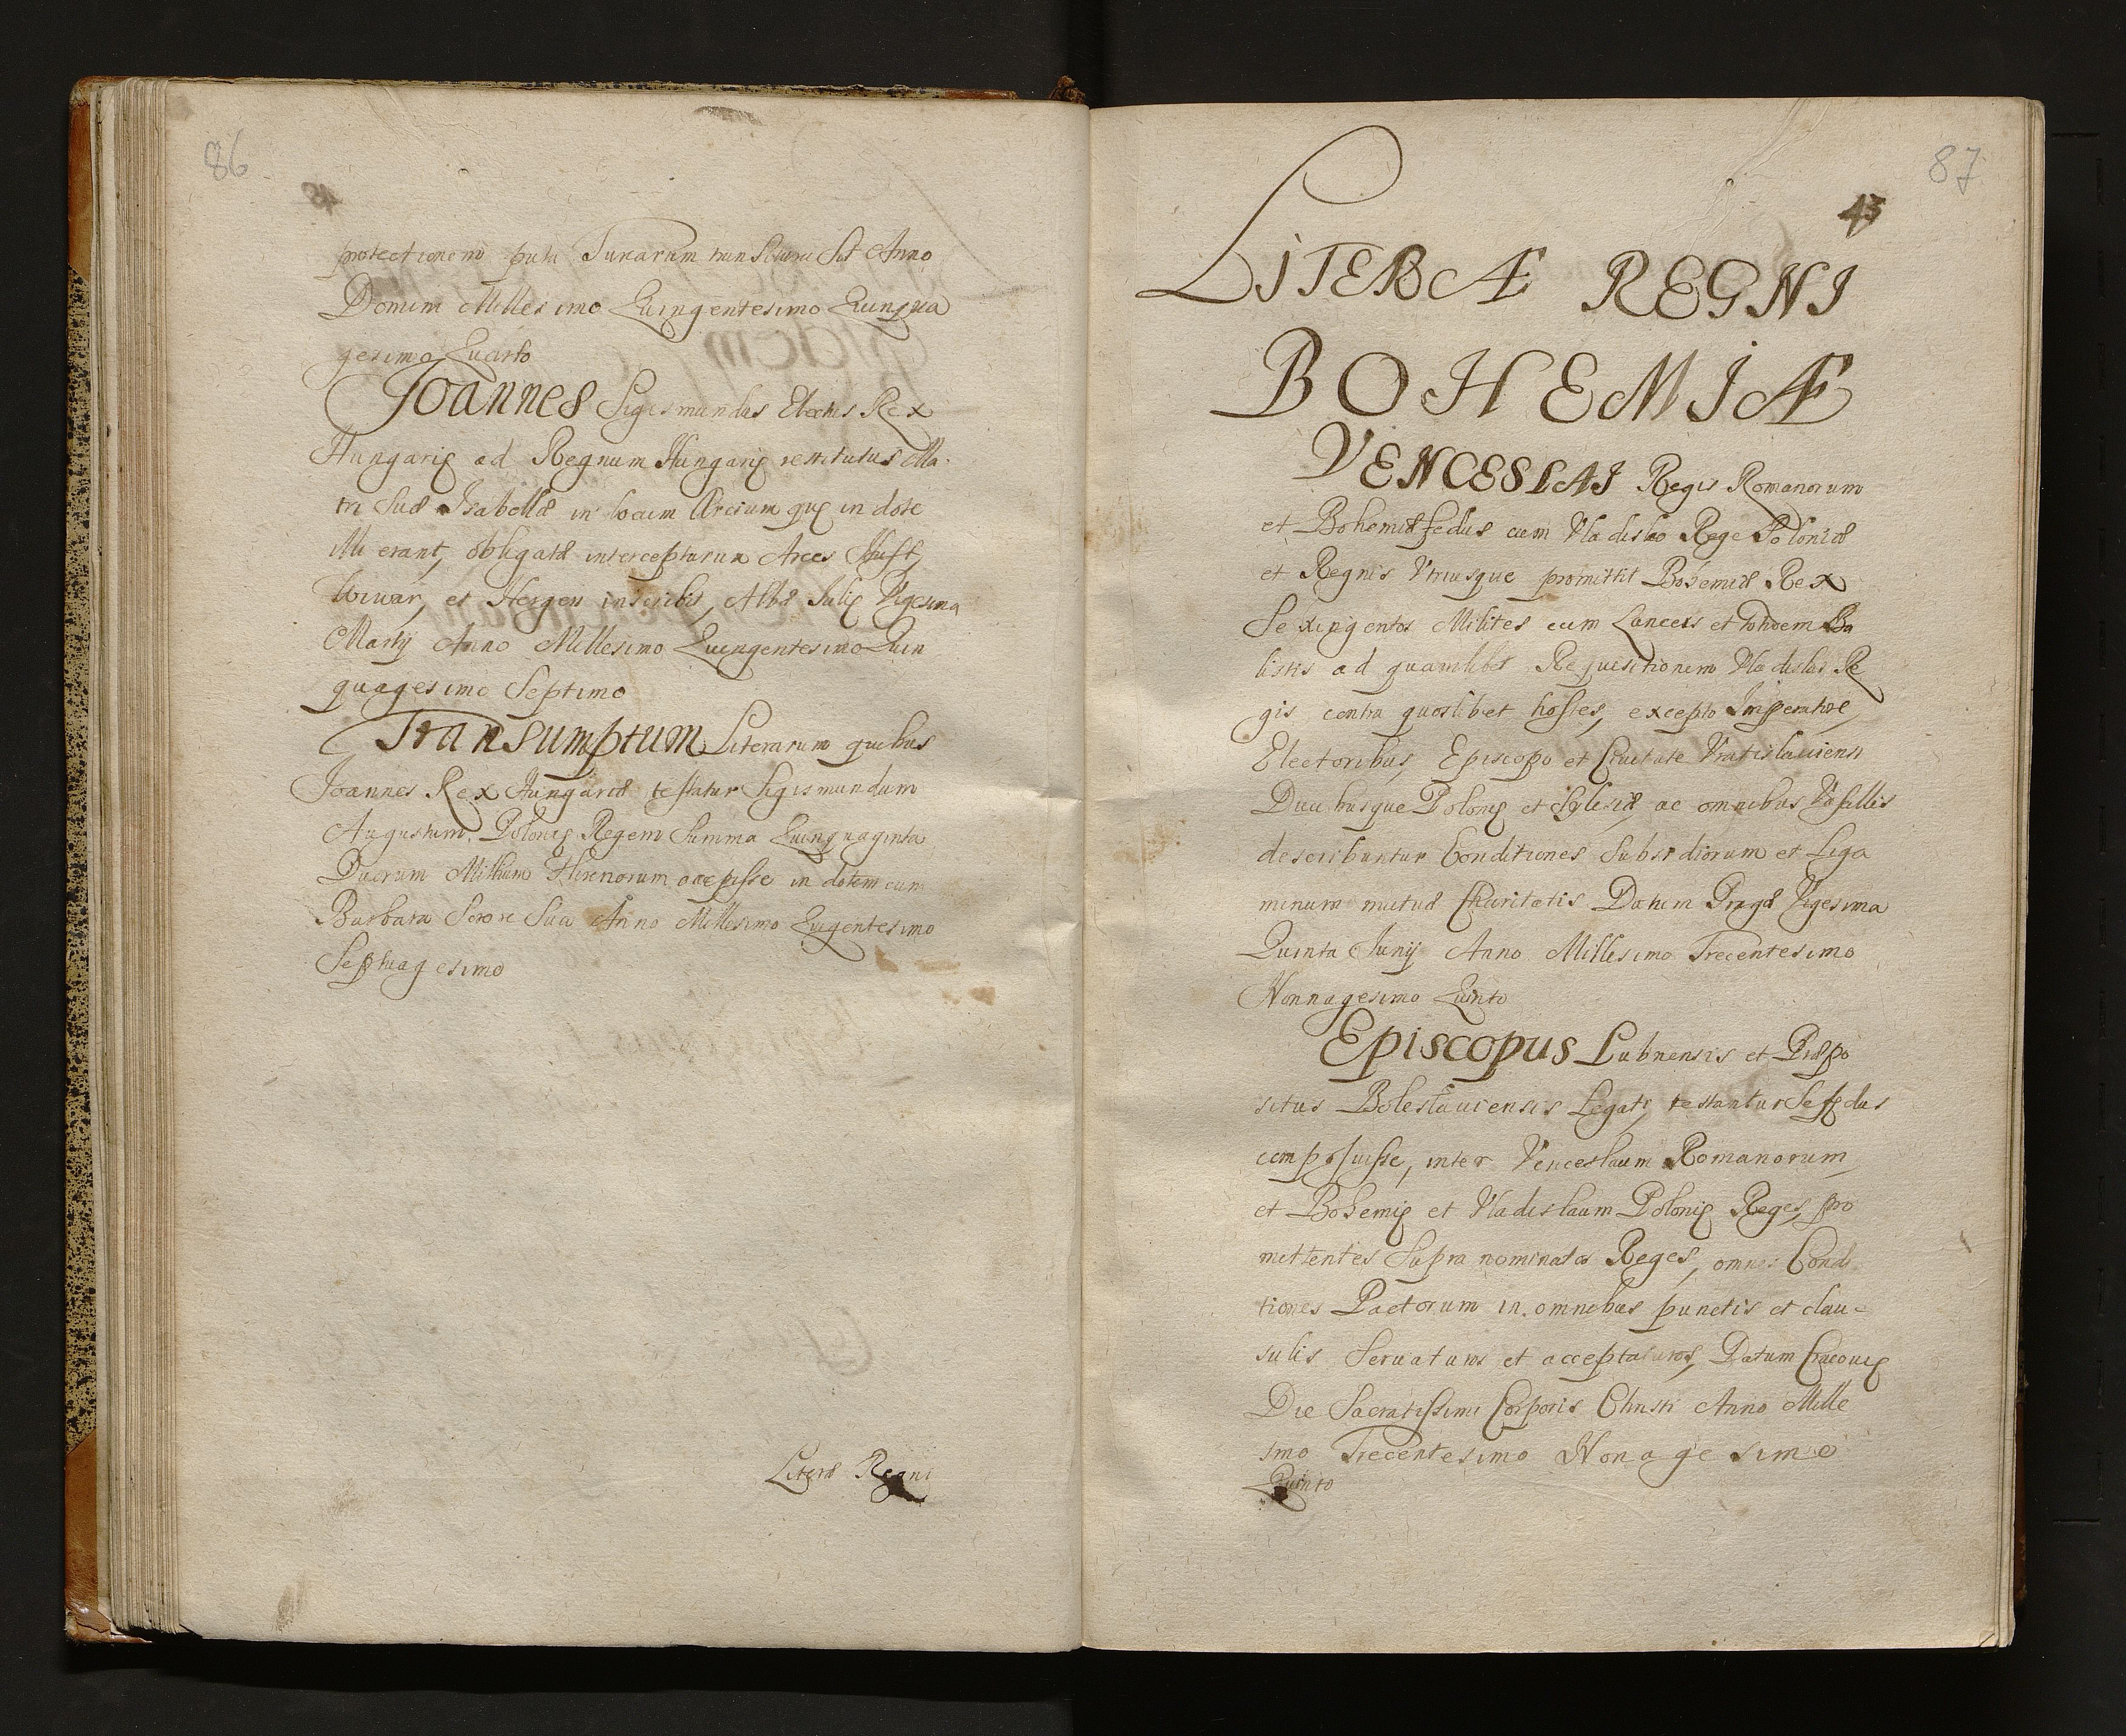 86
protectionem puta Turcarum transiturus sit Anno
Domini Millesimo Quingentesimo Quinqua
gesimo Quarto
Joannes Sigismundus Electus Rex
Hungarię ad Regnum Hungarię restitutus Ma-
tri Suæ Isabellæ in locum Arcium quę in dote
illi erant, obligatæ interceptarum Arces Hust,
Vivar, et Hergen inscribit, Albæ Julię Vigesima
Martij Anno Millesimo Quingentesimo Quin
quagesimo Septimo
Transumptum Literarum quibus
Joannes Rex Hungariæ testatur Sigismundum
Augustum Polonię Regem Summa Quinquaginta
Duorum Millium Florenorum accepisse in dotem cum
Barbara Sorore Sua Anno Millesimo Quigentesimo
Septuagesimo
Literæ Regni
87
43
LITERÆ REGNI
BOHEMIÆ
VENCESLAI Regis Romanorum
et Bohemiæ fedus cum Vladislao Rege Poloniæ
et Regnis Utriusque promittit Bohemiæ Rex
Sexingentos Milites cum Lanceis et totidem Ba
listis ad quamlibet Requisitionem Vladislai Re
gis contra quoslibet hostes, excepto Imperatore,
Electoribus, Episcopo et Civitate Vratislaviensi
Ducibusque Polonię et Sylesiæ ac omnibus Vasallis
describuntur Conditiones Subsidiorum et Liga
minum mutuæ Charitatis Datum Pragæ Vigesima
Quinta Junij Anno Millesimo Trecentesimo
Nonnagesimo Quinto
Episcopus Lubnensis et Præpo
situs Boleslaviensis Legati, testantur Se fędus
composuisse, inter Venceslaum Romanorum
et Bohemię et Vladislaum Polonię Reges, pro
mittentes Supra nominatos Reges, omnes Condi
tiones Pactorum in omnibus punctis et clau-
sulis Servaturos et acceptaturos, Datum Cracovię
Die Sacratissimi Corporis Christi Anno Mille
simo Trecentesimo Nonagesimo
Quinto